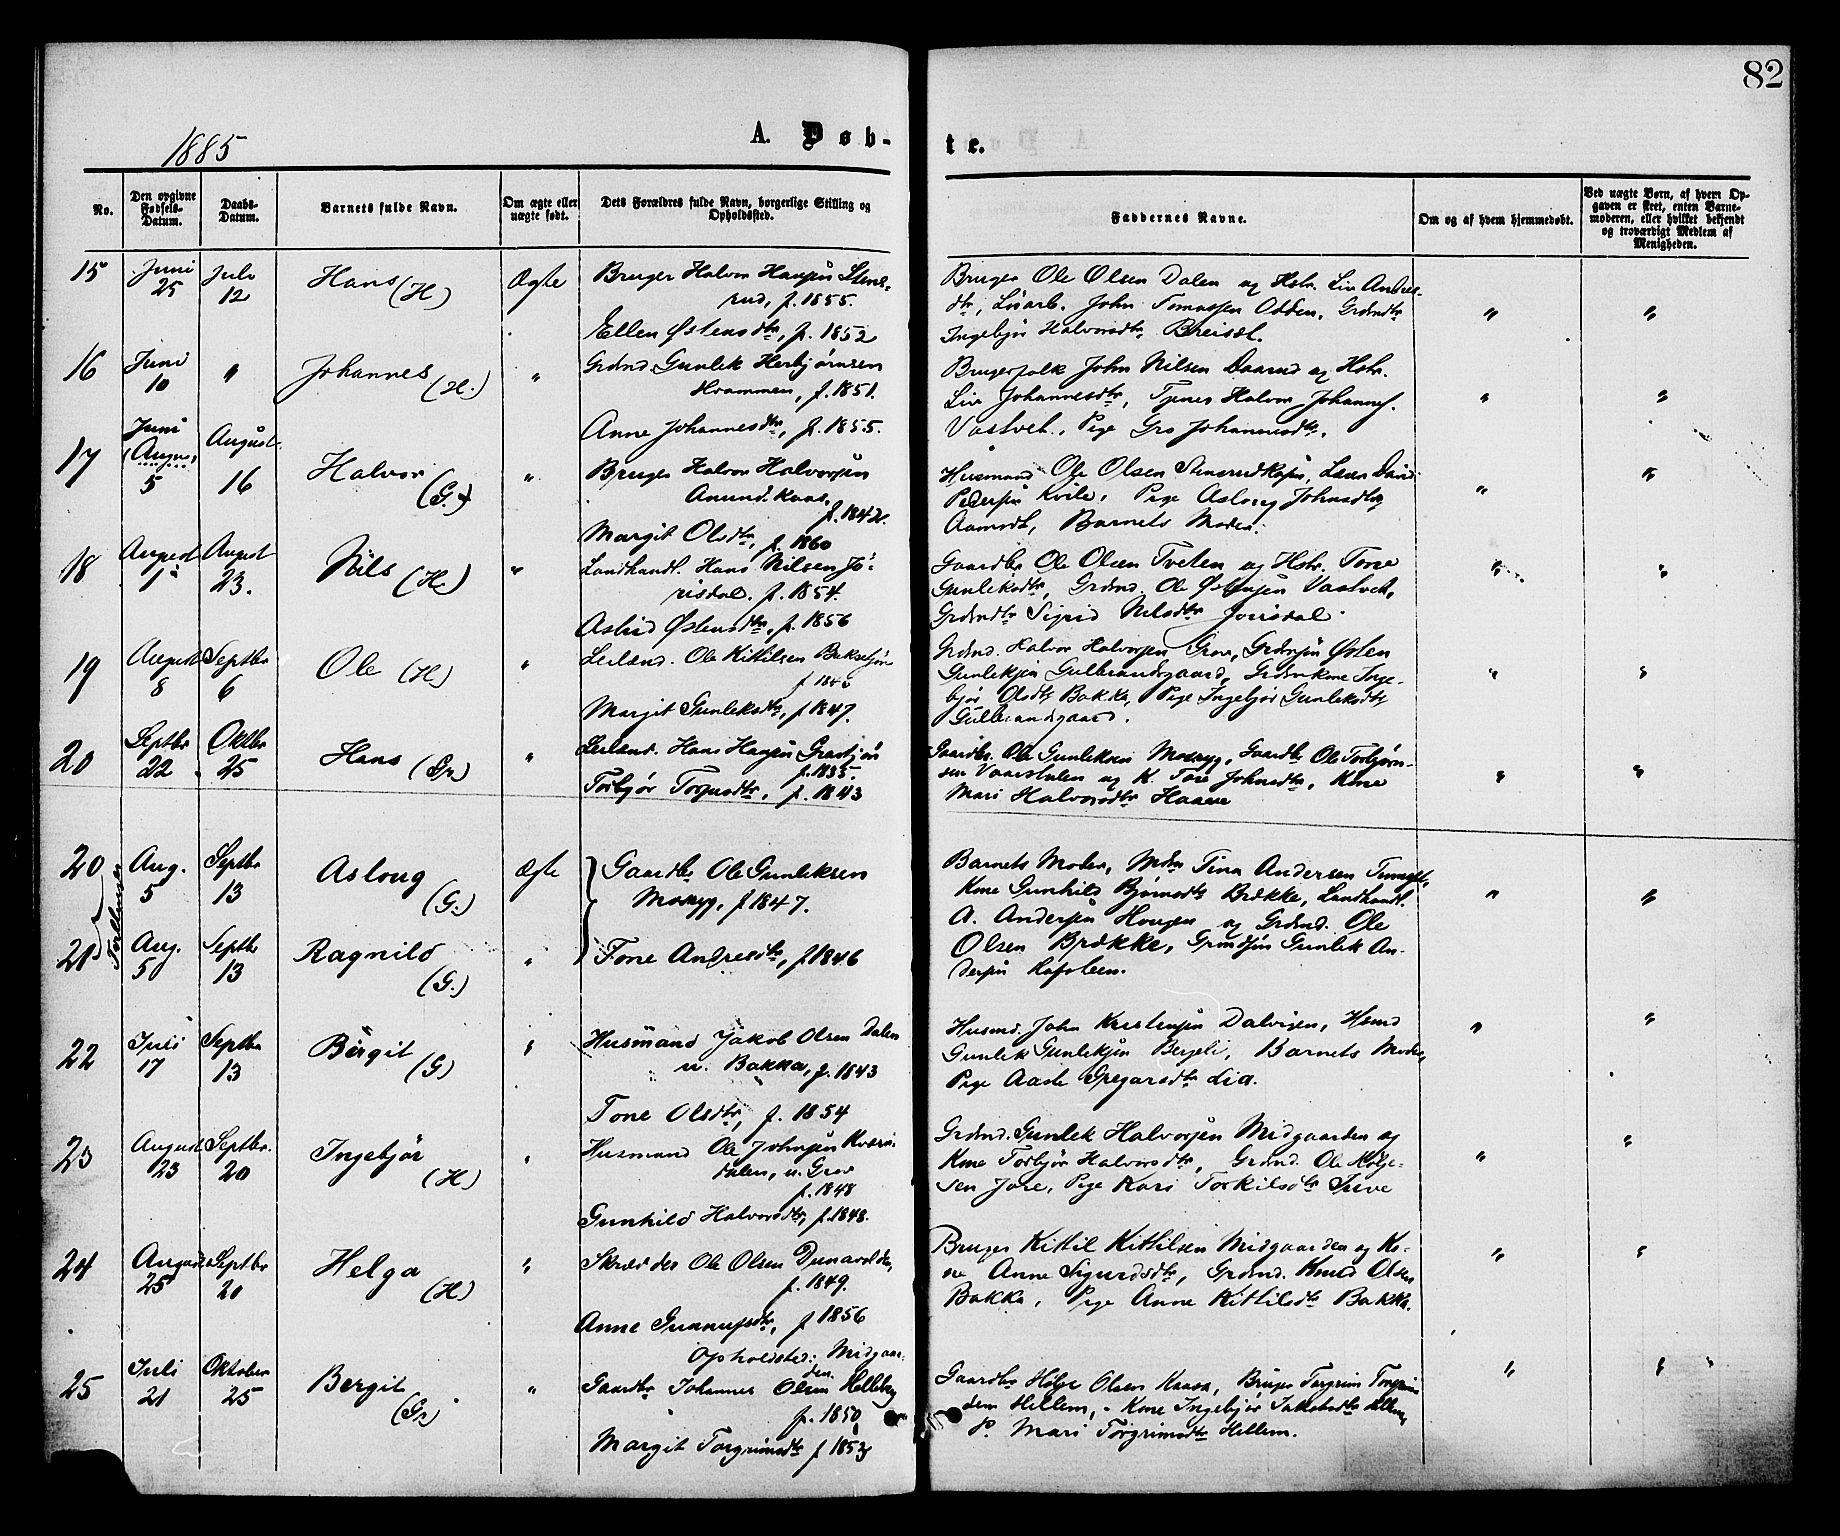 82
1885
A. Døb-
te.
No.
Den opgivne Fødsels-Datum.
Daabs-Datum.
Barnets fulde Navn.
Om ægte eller uægte født.
Dets Forældres fulde Navn, borgerlige Stilling og Opholdssted.
Faddernes Navne.
Om og af hvem hjemmedøbt.
Ved uægte Børn, af hvem Opgaven er skeet, enten Barnemoderen, eller hvilket bekjendt og troværdigt Medlem af Menigheden.
15 Juni 25 Juli 12 Hans (H) Ægte
Bruger Halvor Hansen Stens-
rud, f. 1855.
Ellen Østensdtr, f. 1852
Bruger Ole Olsen Dalen og Hstr. Liv Andres-
dtr, John Tomassen Odden, Grdmdtr
Ingebjør Halvorsdtr Breisæt.
16 Juni 10 " Johannes (H.) "
Grdmd. Gunlek Herbjørnsen
Hvammen, f. 1851.
Anne Johannesdtr, f. 1855.
Brugerfolk John Nilsen Daarud og Hstr.
Liv Johannesdtr, Tjener Halvor Johannes.
Vastveit, Pige Gro Johannesdtr.
17 Juni (August) 5 August 16 Halvor (G.) "
Bruger Halvor Halvorsen
Amund. Kaas, f. 1842.
Margit Olsdtr, f. 1860
Husmand Ole Olsen
Pedersen Kvile, Pige Aslaug Johnsdtr
Aamodt, Barnets Moder.
18 August 1 August 23. Nils (H) "
Landhandl. Hans Nilsen Jo-
risdal. f. 1854.
Astrid Østensdtr, f. 1856
Gaardbr Ole Olsen Tveten og Hstr. Tone
Gunleksdtr, Grdmd. Ole Østensen Vastveit,
Grdmdtr Sigrid Nilsdtr Jorisdal.
19 August 8 Septbr 6 Ole (H) "
Leilænd. Ole Kittilsen Buksejør
Margit Gunleksdtr, f 1847.
Grdmd. Halvor Halvorsen Grov, Grdmsøn Østen
Gunleksen Gulbrandsgaard, Grdmkone Inge-
bjør Olsdtr Bakka, Pige Ingebjør Gunleksdtr
Gulbrandsgaard.
20 Septbr 22 Oktbr 25 Hans (Gr) "
Leilænd. Hans Hansen Grasbjør
f. 1835.
Torbjør Torjusdtr, f. 1843
Gaardbr. Ole Gunleksen Mosryg, Gaardb. Ole Torbjørn-
sen Vaarstulen og K. Tore Johnsdtr, Kone
Mari Halvorsdtr Haave
Tvillinger
20 Aug. 5 Septbr 13 Aslaug (G.) Ægte
Gaardbr Ole Gunleksen
Mosryg, f 1847.
21 Aug. 5 Septbr 13 Ragnild (G.) "
Tone Andresdtr, f 1846
Barnets Moder, Tina Andersen
Kone Gunhild Bjørnsdtr Brække, Landhandl.
A. Andersen Haugen og Grdmd. Ole
Olsen Brække, Grmdsøn Gunlek An-
dersen
22 Juli 17 Septbr 13 Birgit (G) "
Husmand Jakob Olsen Dalen
u. Bakka, f. 1843
Tone Olsdtr, f. 1854
Husmd. John Kristensen Dalvigen, Hsmd
Gunlek Gunleksen Bergeli, Barnets Moder,
Pige Aaste Lia.
23 August 23 Septbr. 20 Ingebjør (H) "
Husmand Ole Johnsen Kværn-
dalen, u. Grov
f. 1848
Gunhild Halvorsdtr, f. 1848.
Grdmd. Gunlek Halvorsen Midgaarden og
Kone Torbjør Halvorsdtr, Grdmd. Ole Hølje-
sen Jore, Pige Kari Torkilsdtr
24 August 25 Septbr 20 Helga (H) "
Skrædder Ole Olsen
f. 1849.
Anne f 1856
Opholdsted: Midgaar-
den.
Bruger Kittil Kittilsen Midgaarden og Ko-
ne Anne Sigurdsdtr, Grdmd. Knud Olsen
Bakka, Pige Anne Kittilsdtr Bakka.
25 Juli 21 Oktober 25 Bergit (Gr) "
Gaardbr Johannes Olsen Helleberg
f. 1850
Margit Torgrimsdtr f 1853
Gaardbr Hølje Olsen Kaasa, Bruger Torgrim Torgrim-
sen Hellem, Kone Ingebjør Jakobsdtr
P. Mari Torgrimsdtr Hellem.